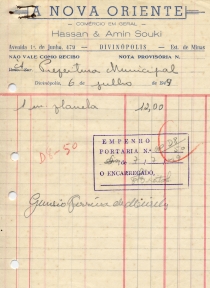 A NOVA ORIENTE
COMÉRCIO EM GERAL
Hassan & Amin Souki
Avenida 1º. de Junho, 479 — DIVINÓPOLIS — Est. de Minas
NÃO VALE COMO RECIBO NOTA PROVISÓRIA N.
Prefeitura Municipal
Divinópolis, 6 de julho de
1 em planela 12,00
D8-50
EMPENHO
PORTARIA N.º
O ENCARREGADO,